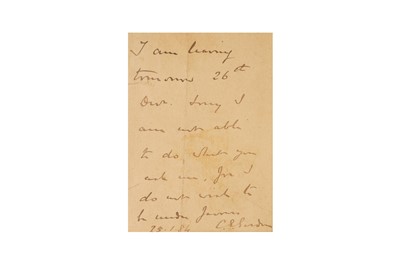 I am leaving
tomorrow 26th
Sorry I
am not able
to do, what you
ask me. For I
do not wish to
be under